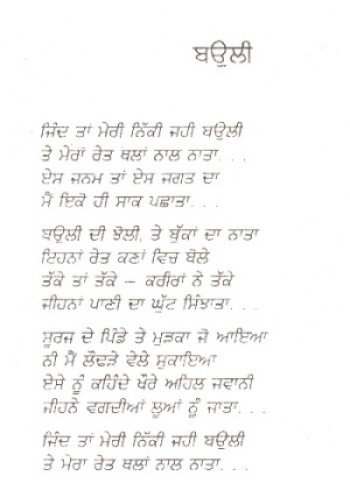 ਬਉਲੀ
ਜਿੰਦ ਤਾਂ ਮੇਰੀ ਨਿੱਕੀ ਜਹੀ ਬਉਲੀ
ਤੇ ਮੇਰਾਂ ਰੇਤ ਥਲਾਂ ਨਾਲ ਨਾਤਾ. . .
ਏਸ ਜਨਮ ਤਾਂ ਏਸ ਜਗਤ ਦਾ
ਮੈਂ ਇਕੋ ਹੀ ਸਾਕ ਪਛਾਤਾ. . .
ਬਉਲੀ ਦੀ ਝੋਲੀ, ਤੇ ਬੁੱਕਾਂ ਦਾ ਨਾਤਾ
ਇਹਨਾਂ ਰੇਤ ਕਣਾਂ ਵਿਚ ਬੋਲੇ
ਤੱਕੇ ਤਾਂ ਤੱਕੇ – ਕਰੀਰਾਂ ਨੇ ਤੱਕੇ
ਜੀਹਨਾਂ ਪਾਣੀ ਦਾ ਘੁੱਟ ਸਿੰਝਾਤਾ. . .
ਸੂਰਜ ਦੇ ਪਿੰਡੇ ਤੇ ਮੁੜਕਾ ਜੋ ਆਇਆ
ਨੀ ਮੈਂ ਲੌਢੜੇ ਵੇਲੇ ਸੁਕਾਇਆ
ਏਸੇ ਨੂੰ ਕਹਿੰਦੇ ਖੌਰੇ ਅਹਿਲ ਜਵਾਨੀ
ਜੀਹਨੇ ਵਗਦੀਆਂ ਲੂਆਂ ਨੂੰ ਜਾਤਾ. . .
ਜਿੰਦ ਤਾਂ ਮੇਰੀ ਨਿੱਕੀ ਜਹੀ ਬਉਲੀ
ਤੇ ਮੇਰਾ ਰੇਤ ਥਲਾਂ ਨਾਲ ਨਾਤਾ. . .